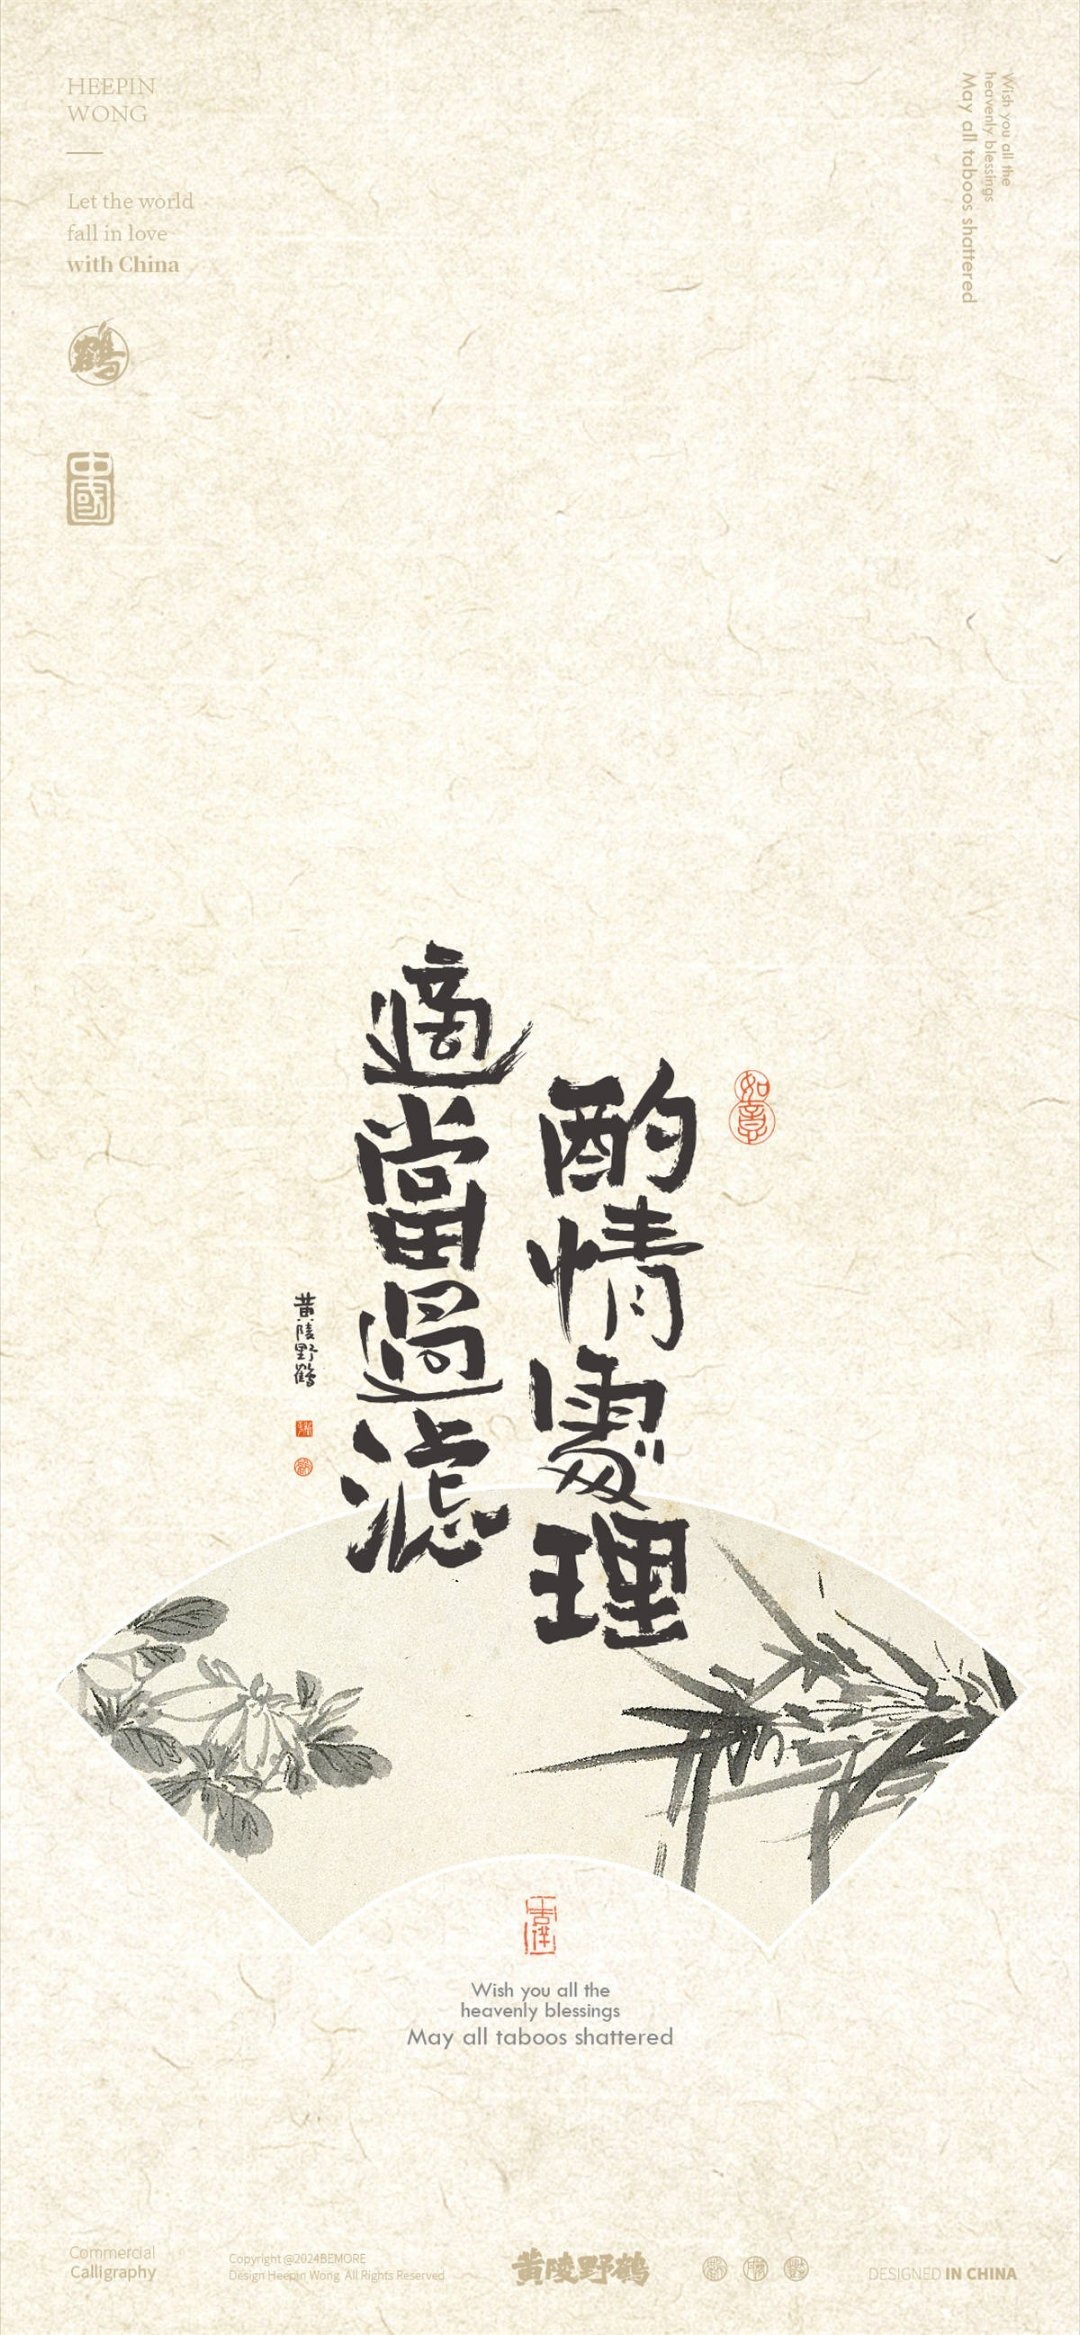 HEEPIN
WONG
Let the world
fall in love
with China
鶴
中國
Wish you all the
heavenly blessings
May all taboos shattered
如意
酌情處理
適當過滤
黄陵野鶴
Wish you all the
heavenly blessings
May all taboos shattered
Commercial
Calligraphy
Copyright @2024BEMORE
Design Heepin Wong All Rights Reserved
黄陵野鶴
DESIGNED IN CHINA